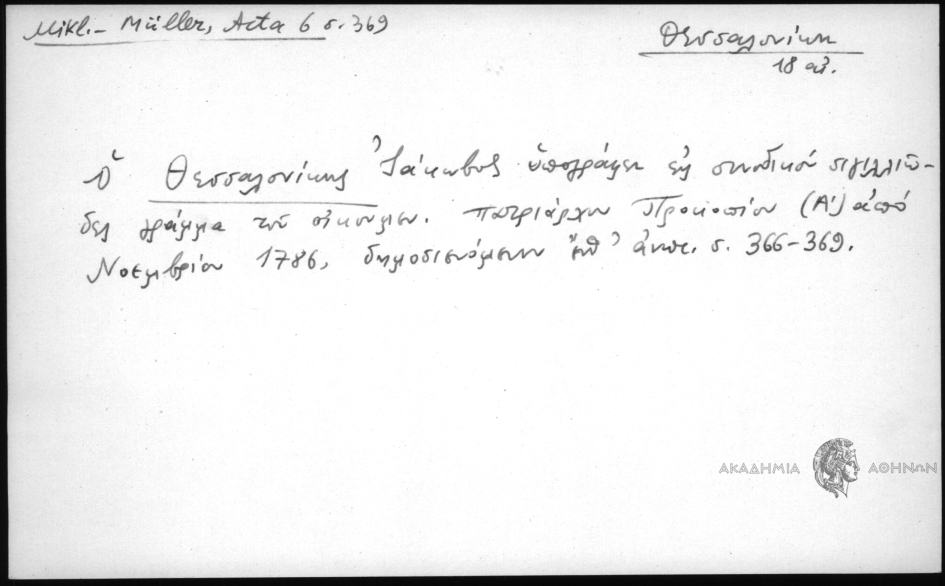 Mikl.- Müller, Acta 6 σ. 369
Θεσσαλονίκη
18 αἰ.
Ὁ Θεσσαλονίκης Ἰάκωβος ὑπογράφει εἰς συνοδικόν σιγιλλιῶ-
δες γράμμα τοῦ οἰκουμεν. πατριάρχου Προκοπίου (Α') ἀπό
Νοεμβρίου 1786, δημοσιευόμενον ἀνωτ. σ. 366-369.
ΑΚΑΔΗΜΙΑ ΑΘΗΝΩΝ